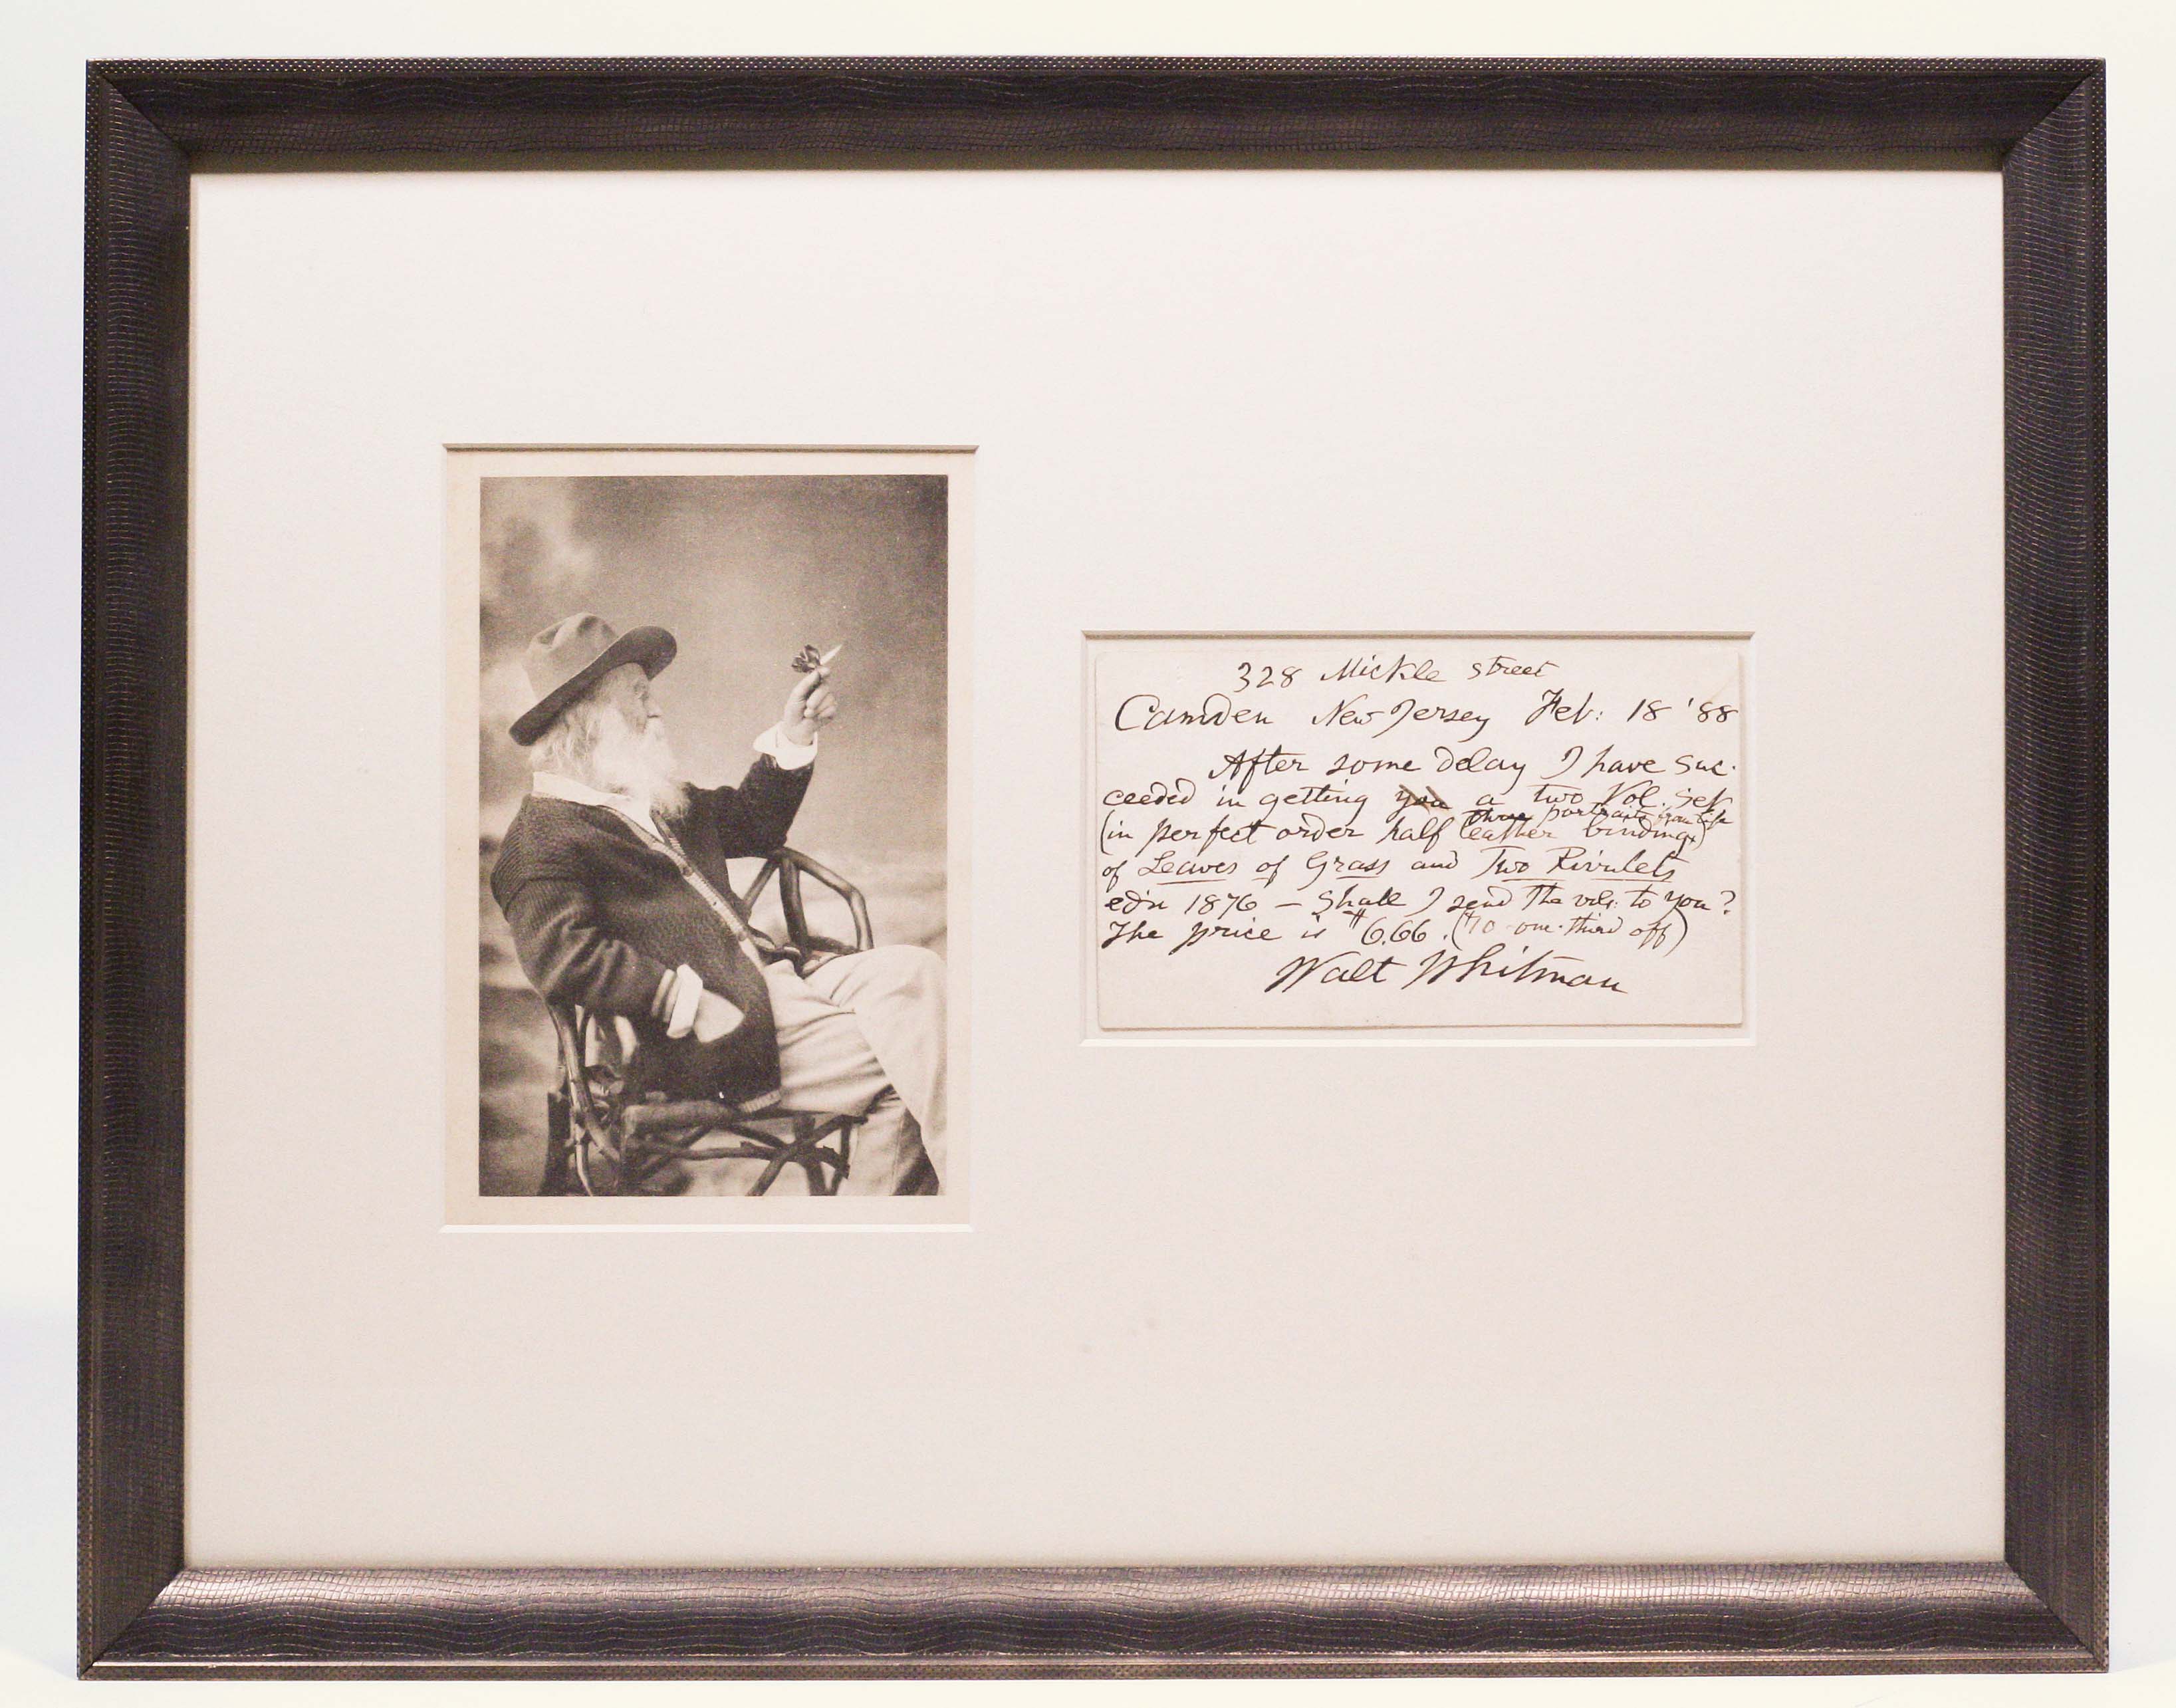 328 Mickle street
Camden New Jersey Feb: 18 '88
After some delay I have suc-
ceeded in getting you a two Vol. set
three portraits from life
(in perfect order half leather binding)
of Leaves of Grass and Two Rivulets
ed'n 1876 – Shall I send the vols: to you?
The price is $6.66. ($10 one-third off)
Walt Whitman